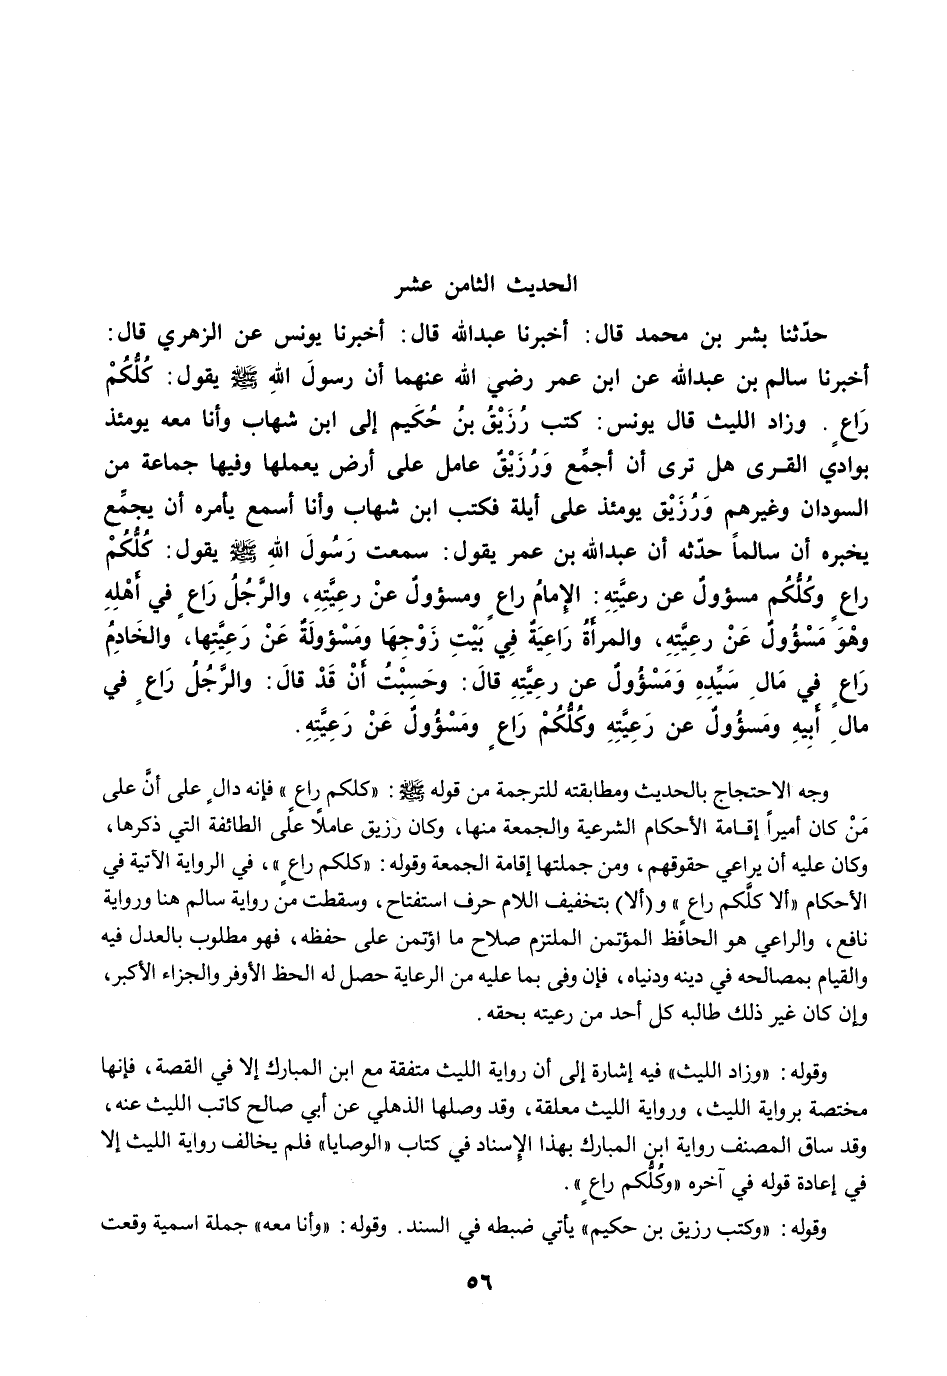 الحديث الثامن عشر
حدّثنا بشر بن محمد قال: أخبرنا عبدالله قال: أخبرنا يونس عن الزهري قال:
أخبرنا سالم بن عبدالله عن ابن عمر رضي الله عنهما أن رسولَ اللهِ ﷺ يقول: كُلُّكُمْ
رَاعٍ. وزاد الليث قال يونس: كتب رُزَيْقُ بنُ حُكَيم إلى ابن شهاب وأنا معه يومئذ
بوادي القرى هل ترى أن أجمِّع وَرُزَيْقٌ عامل على أرض يعملها وفيها جماعة من
السودان وغيرهم وَرُزَيْق يومئذ على أيلة فكتب ابن شهاب وأنا أسمع يأمره أن يجمِّع
يخبره أن سالماً حدّثه أن عبدالله بن عمر يقول: سمعت رَسُولَ اللهِ ﷺ يقول: كُلُّكُمْ
راعٍ وكُلُّكُم مسؤولٌ عن رعيَّتِه: الإمامُ راعٍ ومسؤولٌ عنْ رعِيَّتِهِ، والرَّجُلُ رَاعٍ في أَهْلِهِ
وهْوَ مَسْؤُولٌ عَنْ رعيَّتِهِ، والمرأَةُ رَاعيَةٌ فِي بَيْتِ زَوْجِهَا ومَسْؤولَةٌ عَنْ رَعِيَّتِها، والخَادِمُ
رَاعٍ فِي مَالِ سَيِّدِهِ وَمَسْؤُولٌ عن رعِيَّتِهِ قالَ: وحَسِبْتُ أَنْ قَدْ قالَ: والرَّجُلُ رَاعٍ في
مالِ أَبِيهِ ومَسؤُولٌ عن رَعِيَّتِهِ وكُلُّكُمْ رَاعٍ ومَسْؤُولٌ عَنْ رَعِيَّتِهِ.
وجه الاحتجاج بالحديث ومطابقته للترجمة من قوله ﷺ: «كلكم راعٍ» فإنه دالٍ على أنَّ على
مَنْ كان أميراً إقامة الأحكام الشرعية والجمعة منها، وكان رزيق عاملاً على الطائفة التي ذكرها،
وكان عليه أن يراعي حقوقهم، ومن جملتها إقامة الجمعة وقوله: «كلكم راعٍ»، في الرواية الآتية في
الأحكام «ألا كلَّكم راعٍ» و(ألا) بتخفيف اللام حرف استفتاح، وسقطت من رواية سالم هنا ورواية
نافع، والراعي هو الحافظ المؤتمن الملتزم صلاح ما اؤتمن على حفظه، فهو مطلوب بالعدل فيه
والقيام بمصالحه في دينه ودنياه، فإن وفى بما عليه من الرعاية حصل له الحظ الأوفر والجزاء الأكبر،
وإن كان غير ذلك طالبه كل أحد من رعيته بحقه.
وقوله: «وزاد الليث» فيه إشارة إلى أن رواية الليث متفقة مع ابن المبارك إلا في القصة، فإنها
مختصة برواية الليث، ورواية الليث معلقة، وقد وصلها الذهلي عن أبي صالح كاتب الليث عنه،
وقد ساق المصنف رواية ابن المبارك بهذا الإسناد في كتاب «الوصايا» فلم يخالف رواية الليث إلا
في إعادة قوله في آخره «وكُلُّكم راعٍ».
وقوله: «وكتب رزيق بن حكيم» يأتي ضبطه في السند. وقوله: «وأنا معه» جملة اسمية وقعت
٥٦